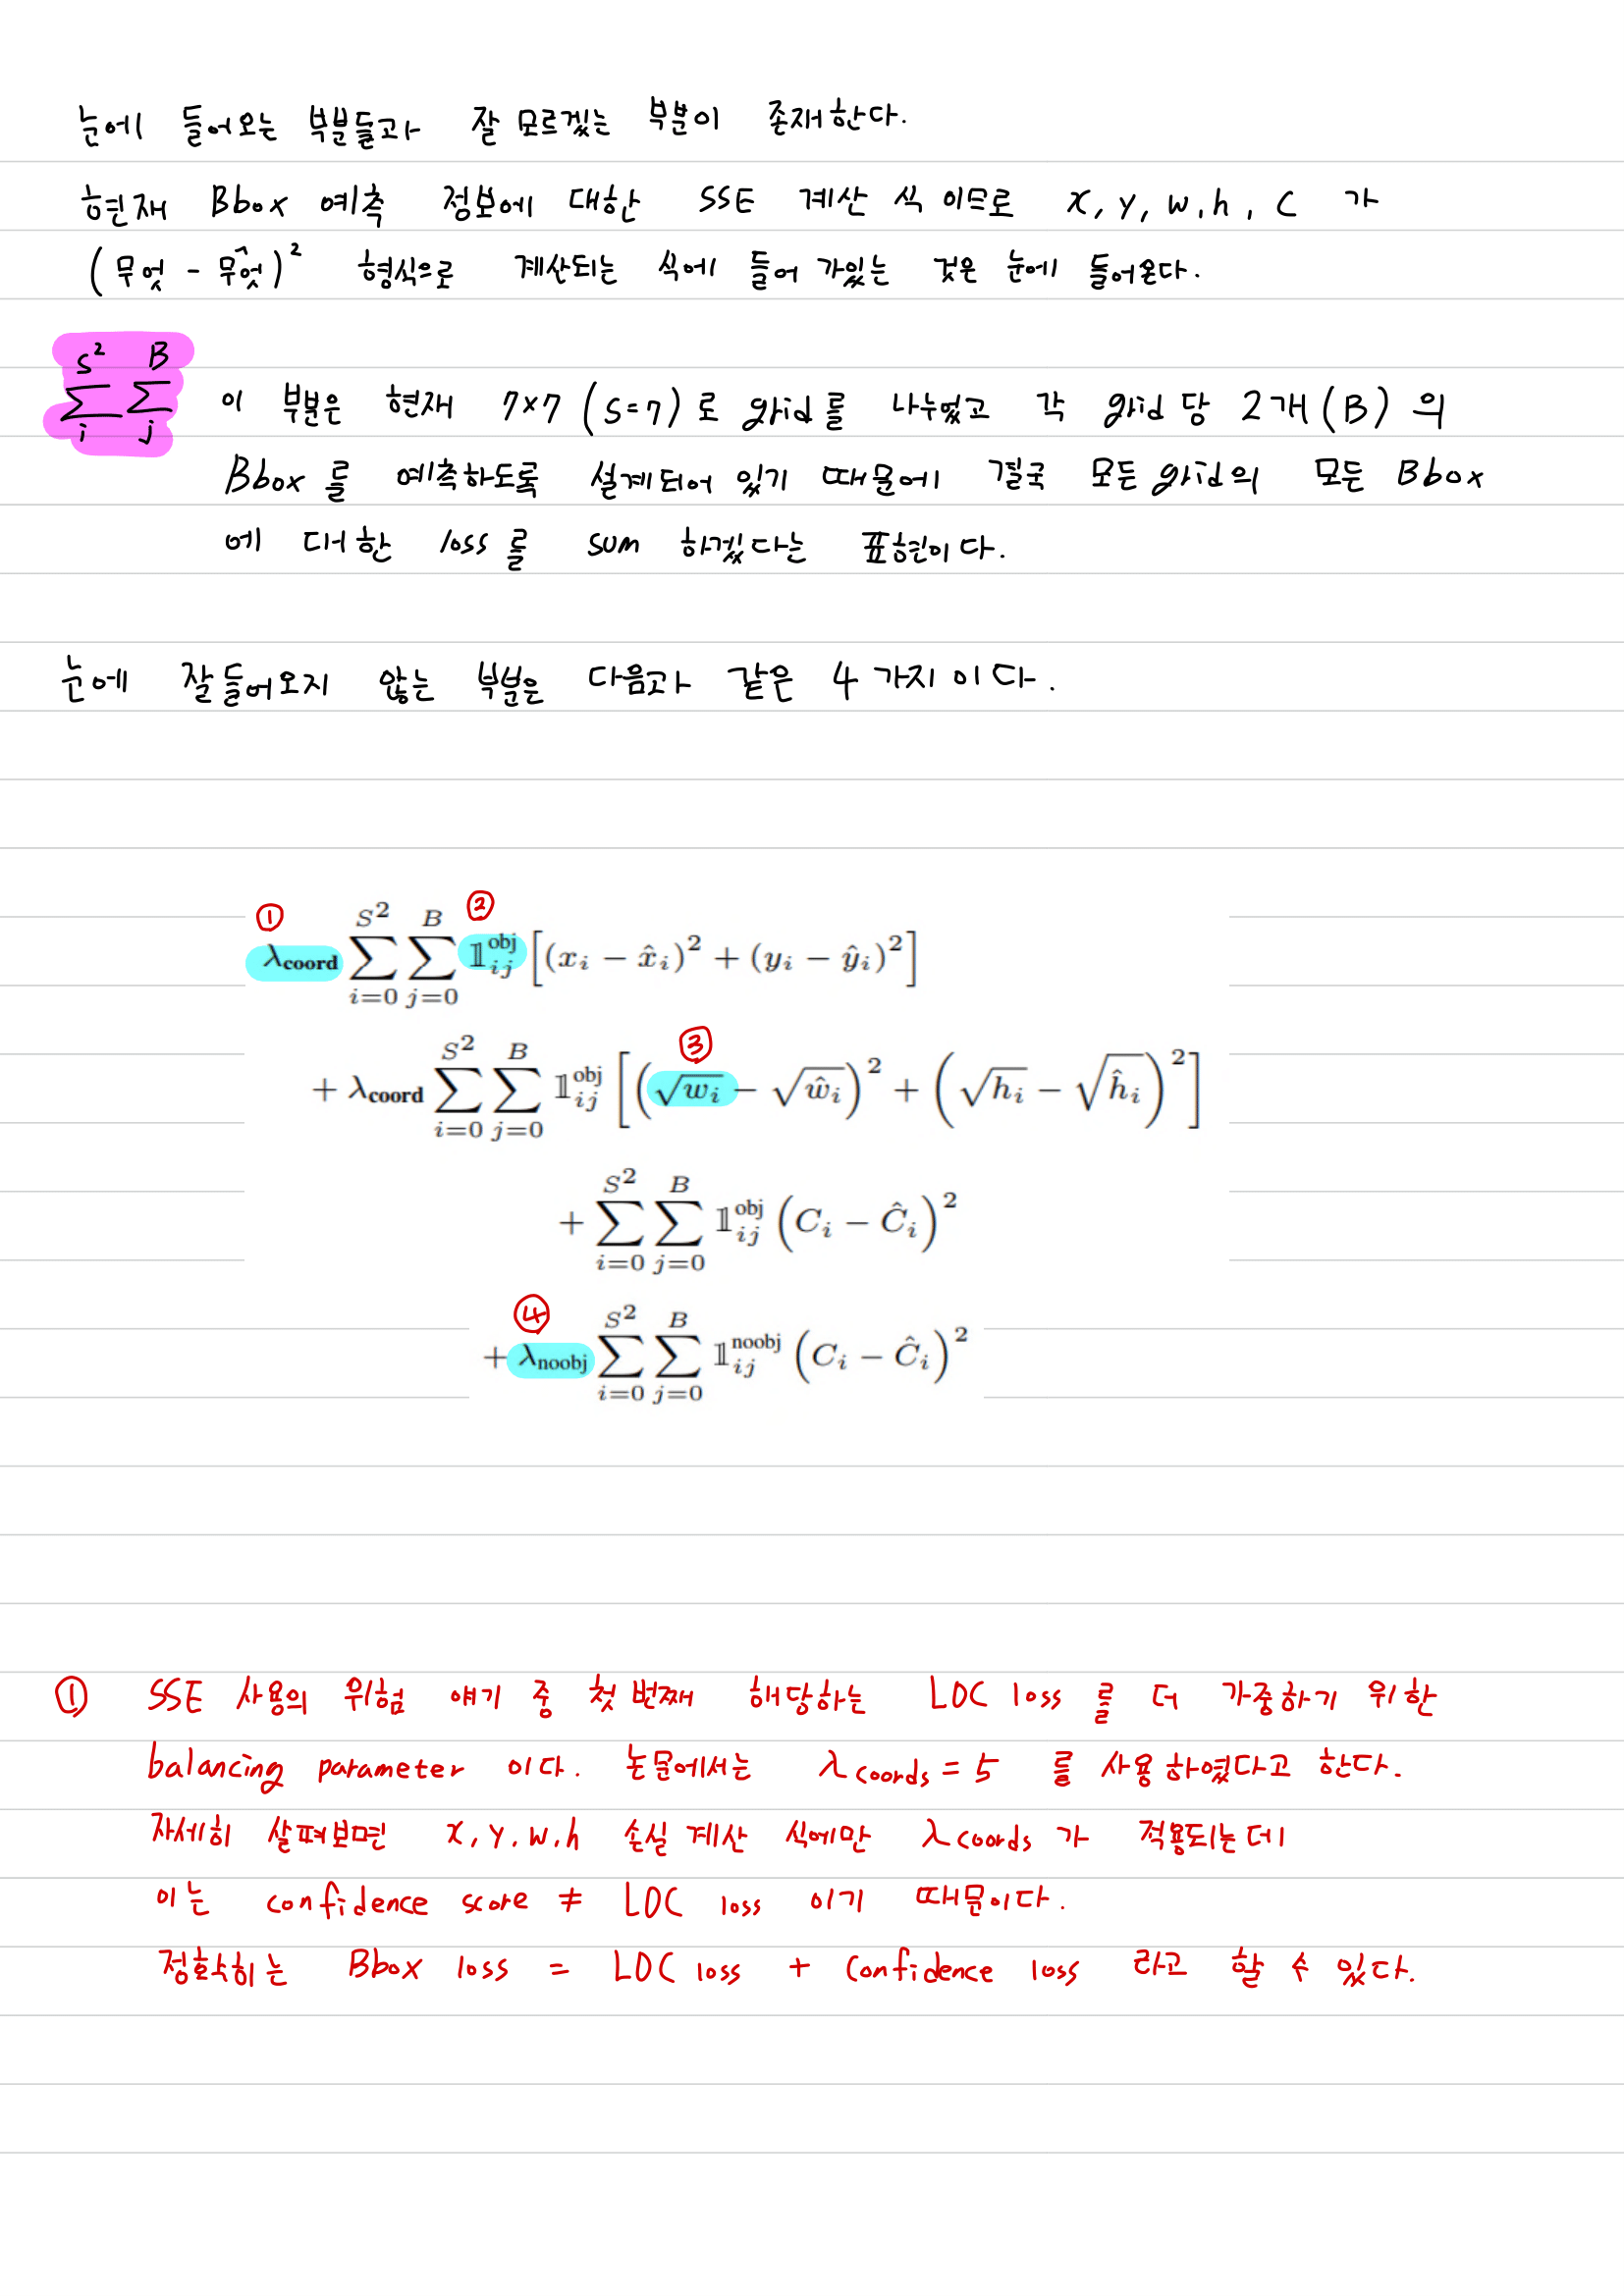 눈에 들어오는 부분들과 잘 모르겠는 부분이 존재한다.
현재 Bbox 예측 정보에 대한 SSE 계산 식 이므로 x, y, w, h, C 가
(무엇 - 무엇^)² 형식으로 계산되는 식에 들어 가있는 것은 눈에 들어온다.
∑_i^{S²} ∑_j^B 이 부분은 현재 7×7 (S=7)로 grid를 나누었고 각 grid 당 2개(B)의
Bbox를 예측하도록 설계되어 있기 때문에 결국 모든 grid의 모든 Bbox
에 대한 loss를 sum 하겠다는 표현이다.
눈에 잘들어오지 않는 부분은 다음과 같은 4가지 이다.
① ②
λ_coord ∑_{i=0}^{S²} ∑_{j=0}^{B} 𝟙_{ij}^{obj} [(x_i − x̂_i)² + (y_i − ŷ_i)²]
③
+ λ_coord ∑_{i=0}^{S²} ∑_{j=0}^{B} 𝟙_{ij}^{obj} [(√w_i − √ŵ_i)² + (√h_i − √ĥ_i)²]
+ ∑_{i=0}^{S²} ∑_{j=0}^{B} 𝟙_{ij}^{obj} (C_i − Ĉ_i)²
④
+ λ_noobj ∑_{i=0}^{S²} ∑_{j=0}^{B} 𝟙_{ij}^{noobj} (C_i − Ĉ_i)²
① SSE 사용의 위험 얘기 중 첫 번째 해당하는 LOC loss 를 더 가중하기 위한
balancing parameter 이다. 논문에서는 λ_coords = 5 를 사용하였다고 한다.
자세히 살펴보면 x, y, w, h 손실 계산 식에만 λ_coords 가 적용되는데
이는 confidence score ≠ LOC loss 이기 때문이다.
정확히는 Bbox loss = LOC loss + Confidence loss 라고 할 수 있다.